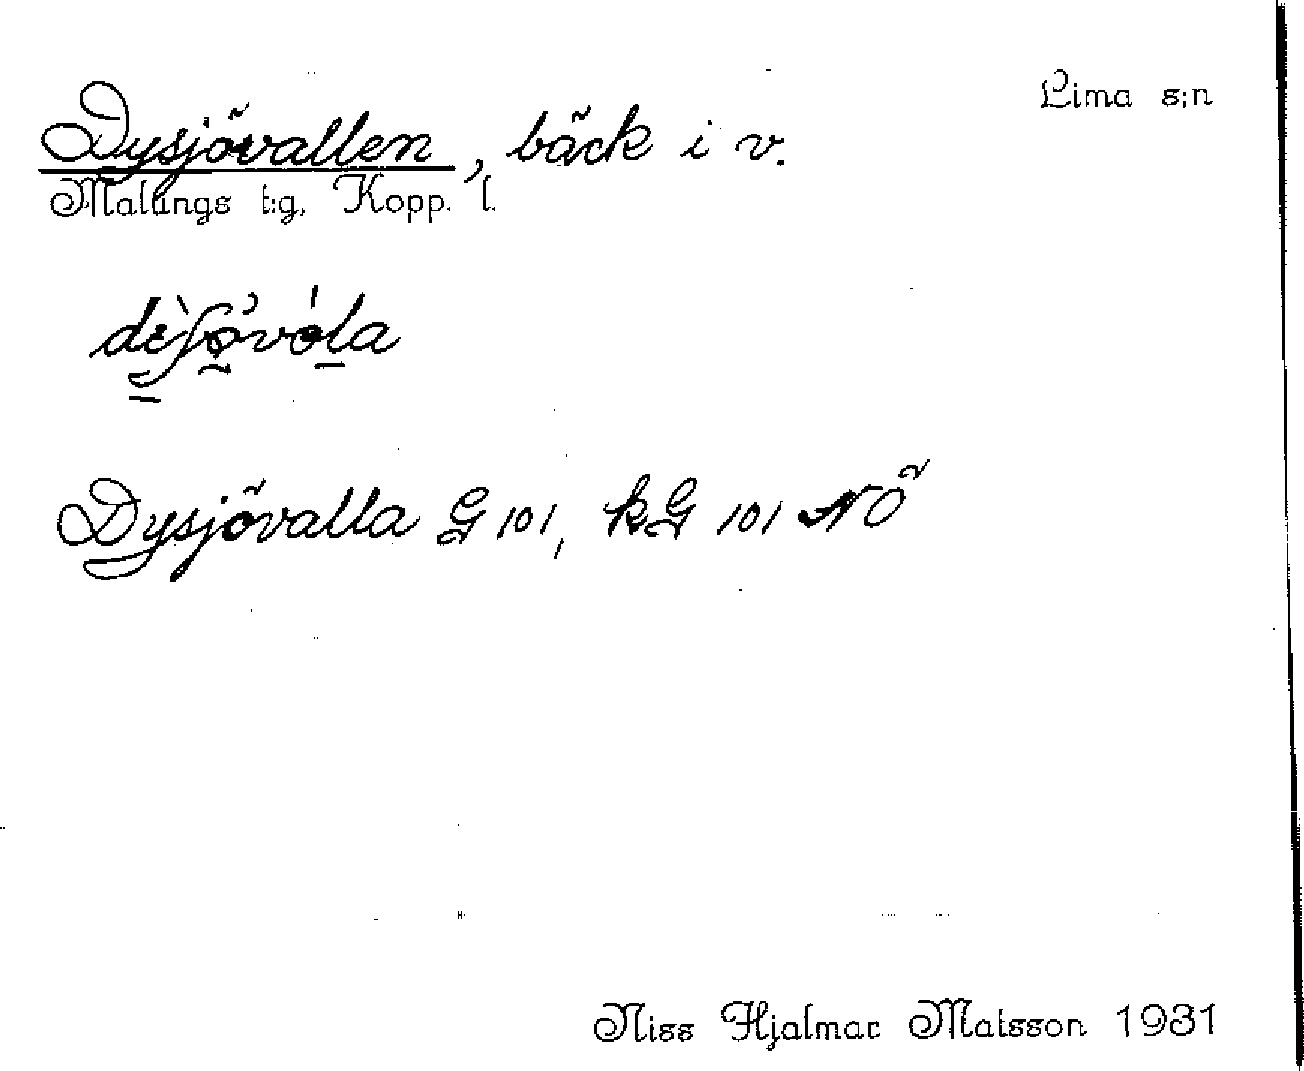 Lima s:n
Dysjövallen, bäck i v.
Malungs t:g, Kopp. l.
Dysjövalla G 101, kG 101 NÖ
Niss Hjalmar Matsson 1931